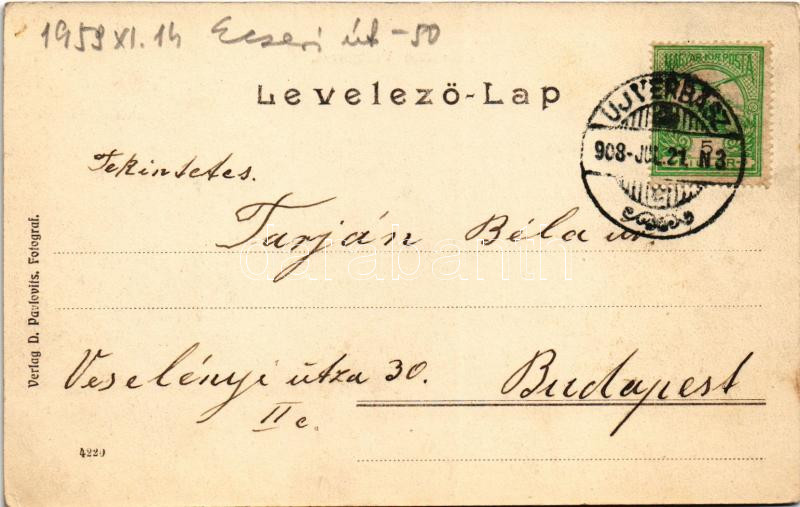 1958 XI. 14 Ecseri út -50
MAGYAR KIR. POSTA
Levelező-Lap
UJVERBÁSZ
908-JUL.21. N3
5
Tekintetes.
Tarján Béla úr.
darabanth
Verlag D. Pavlovits, Fotograf.
Veselényi útza 30. Budapest
II e.
4220